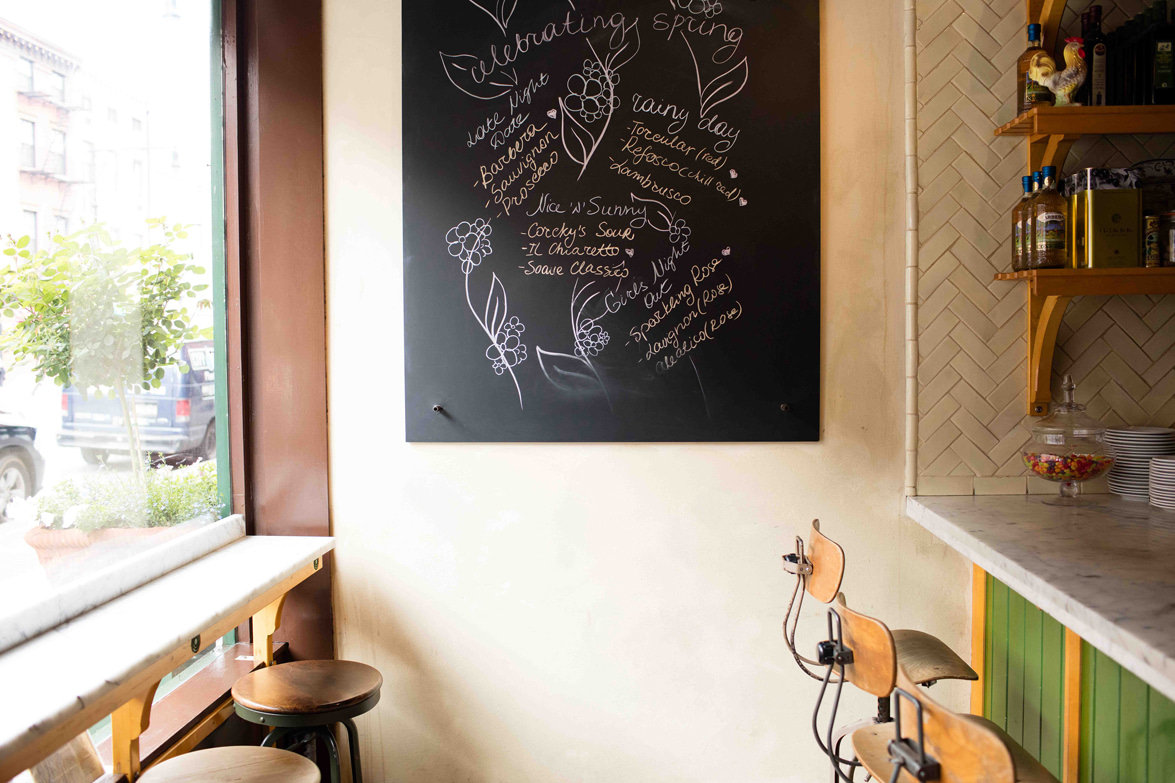 celebrating spring
Late Night
Date
- Barbera
- Sauvignon
- Prosecco
rainy day
- Torcular (red)
- Refosco (chill red)
- Lambrusco
Nice 'N' Sunny
- Corcky's Sour
- Il Chiaretto
- Soave Classic
Girls Night
Out
- Sparkling Rosa
- (Rosé)
- aleatico (Rosé)